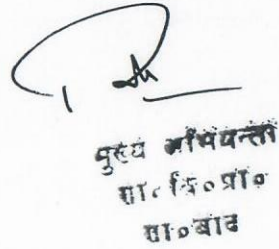 मुख्य अभियन्ता
गा० वि० प्रा०
गा०बाद